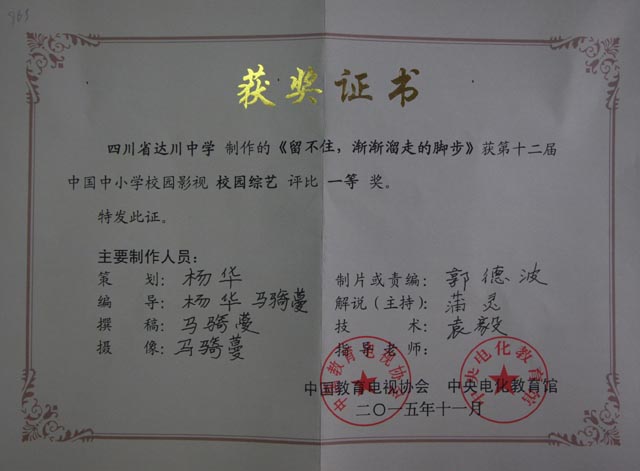 963
获奖证书
四川省达川中学 制作的《留不住，渐渐溜走的脚步》获第十二届
中国中小学校园影视 校园综艺 评比 一等 奖。
特发此证。
主要制作人员：
策 划：杨华
编 导：杨华 马骑蔓
撰 稿：马骑蔓
摄 像：马骑蔓
制片或责编：郭德波
解说（主持）：蒲灵
技 术：袁毅
指导老师：
中国教育电视协会 中央电化教育馆
二〇一五年十一月
中国教育电视协会
中央电化教育馆